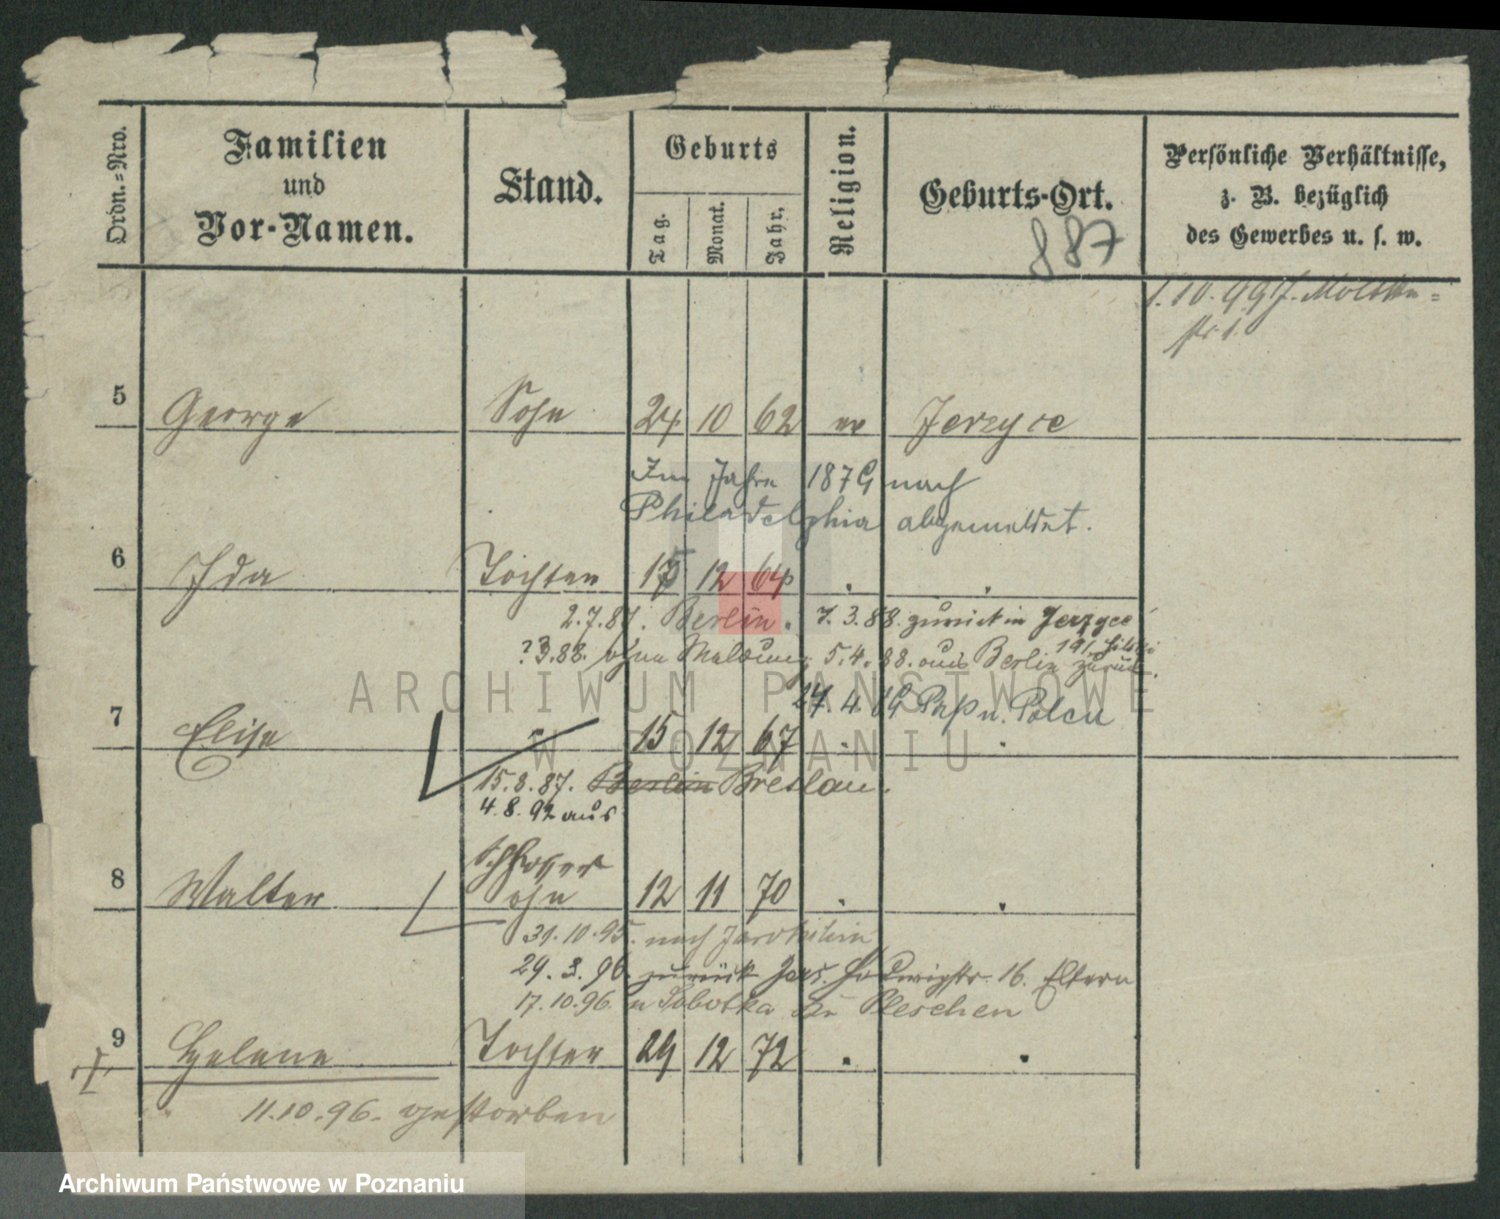 Ordn.-Nro.
Familien
und
Vor-Namen.
Stand.
Geburts
Tag.
Monat.
Jahr.
Religion.
Geburts-Ort.
Persönliche Verhältnisse,
z. B. bezüglich
des Gewerbes u. s. w.
887
1.10.99 Moltke-
str 1.
5 George Sohn 24 10 62 ev Jerzyce
Im Jahre 1879 nach
Philadelphia abgemeldet.
6 Ida Tochter 15 12 64 . .
2.7.87. Berlin. 7.3.88. zurück in Jerzyce
?3.88. ohne Meldung 5.4.88. aus Berlin zurück.
4.
7 Elise " 15 12 67 . .
15.8.87. Berlin Breslau.
4.8.92 aus
8 Walter Schlosser
Sohn 12 11 70 . .
31.10.95. nach Jarotschin
29.3.96. zurück Jers. Hedwigstr. 16. Eltern
17.10.96. n Sobotka Kr Pleschen
9 Helene Tochter 29 12 72 . .
11.10.96. gestorben
ARCHIWUM PAŃSTWOWE
W POZNANIU
Archiwum Państwowe w Poznaniu